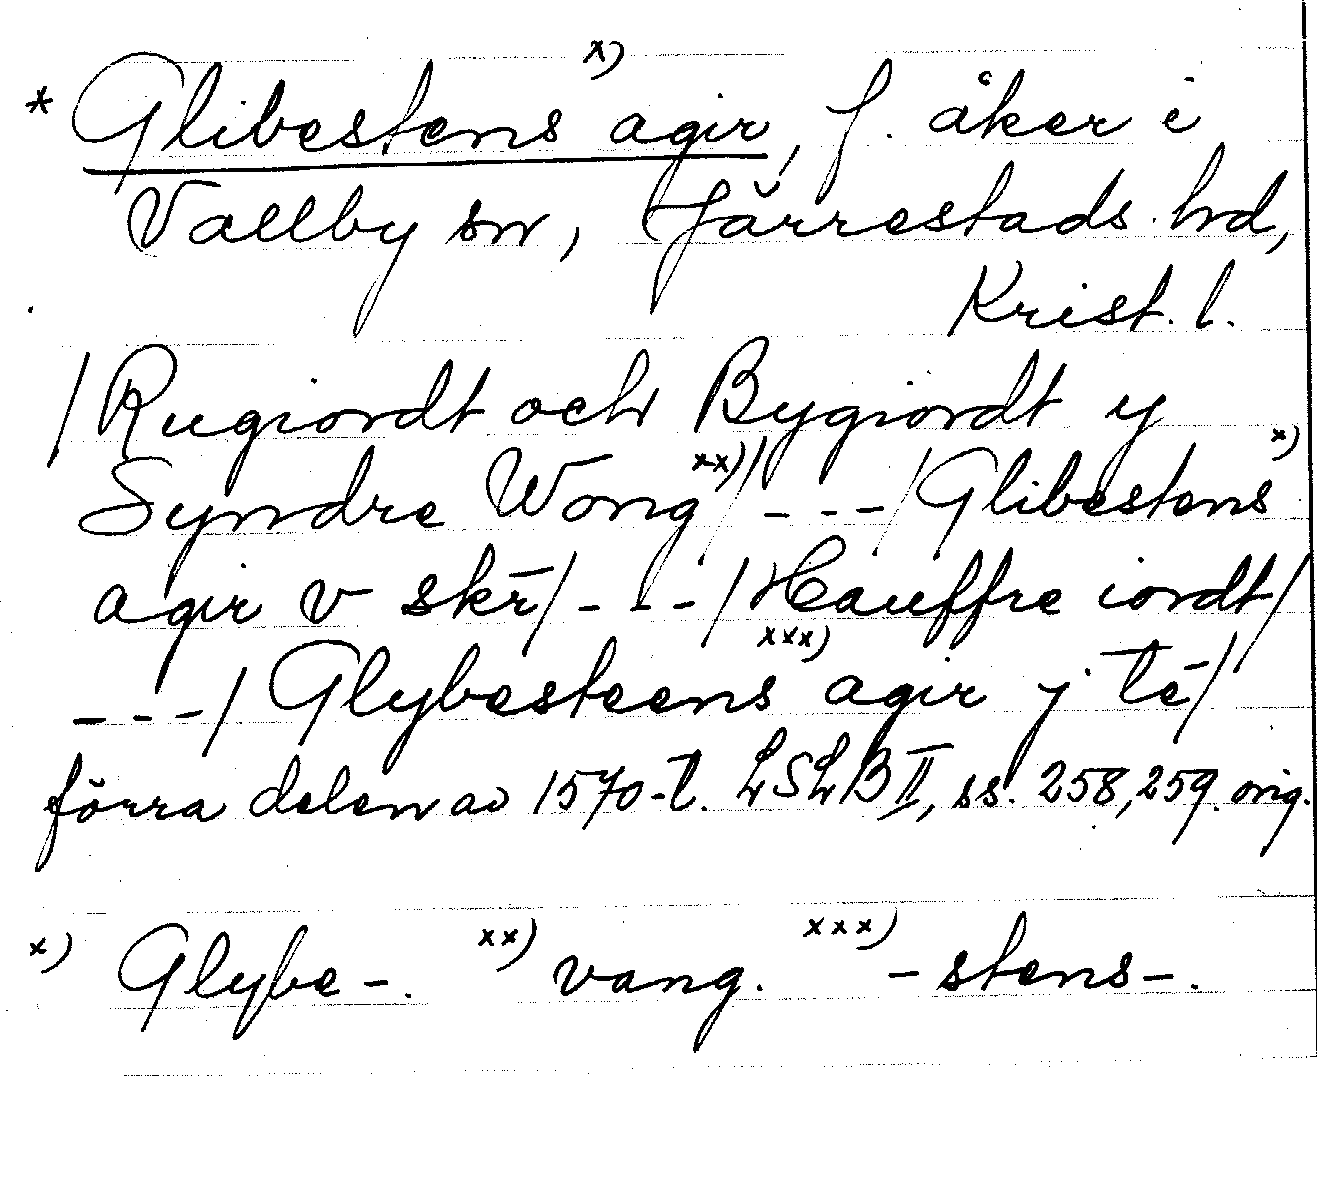 * Glibestens x) agir, f. åker i
Vallby sn, Järrestads hd,
Krist. l.
/Rugiordt och Bygiordt y
Syndre Wong xx)/ /---/ Glibestens x)
agir v skr̄/---/Hauffre iordt/
---/ Glybesteens xxx) agir j tē/
förra delen av 1570-t. LSLB II, ss. 258, 259. orig.
x) Glybe-. xx) vang. xxx) -stens-.